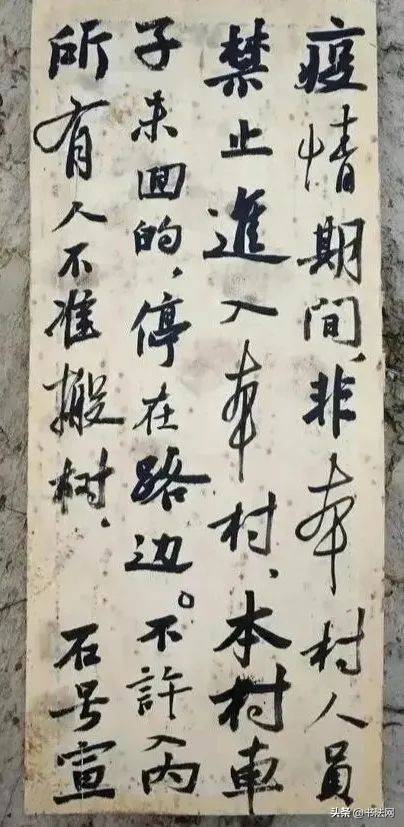 疫情期间,非本村人员
禁止進入本村、本村車
子未回的,停在路边。不許入内
所有人不准搬树.
石号宣
头条 @书法网